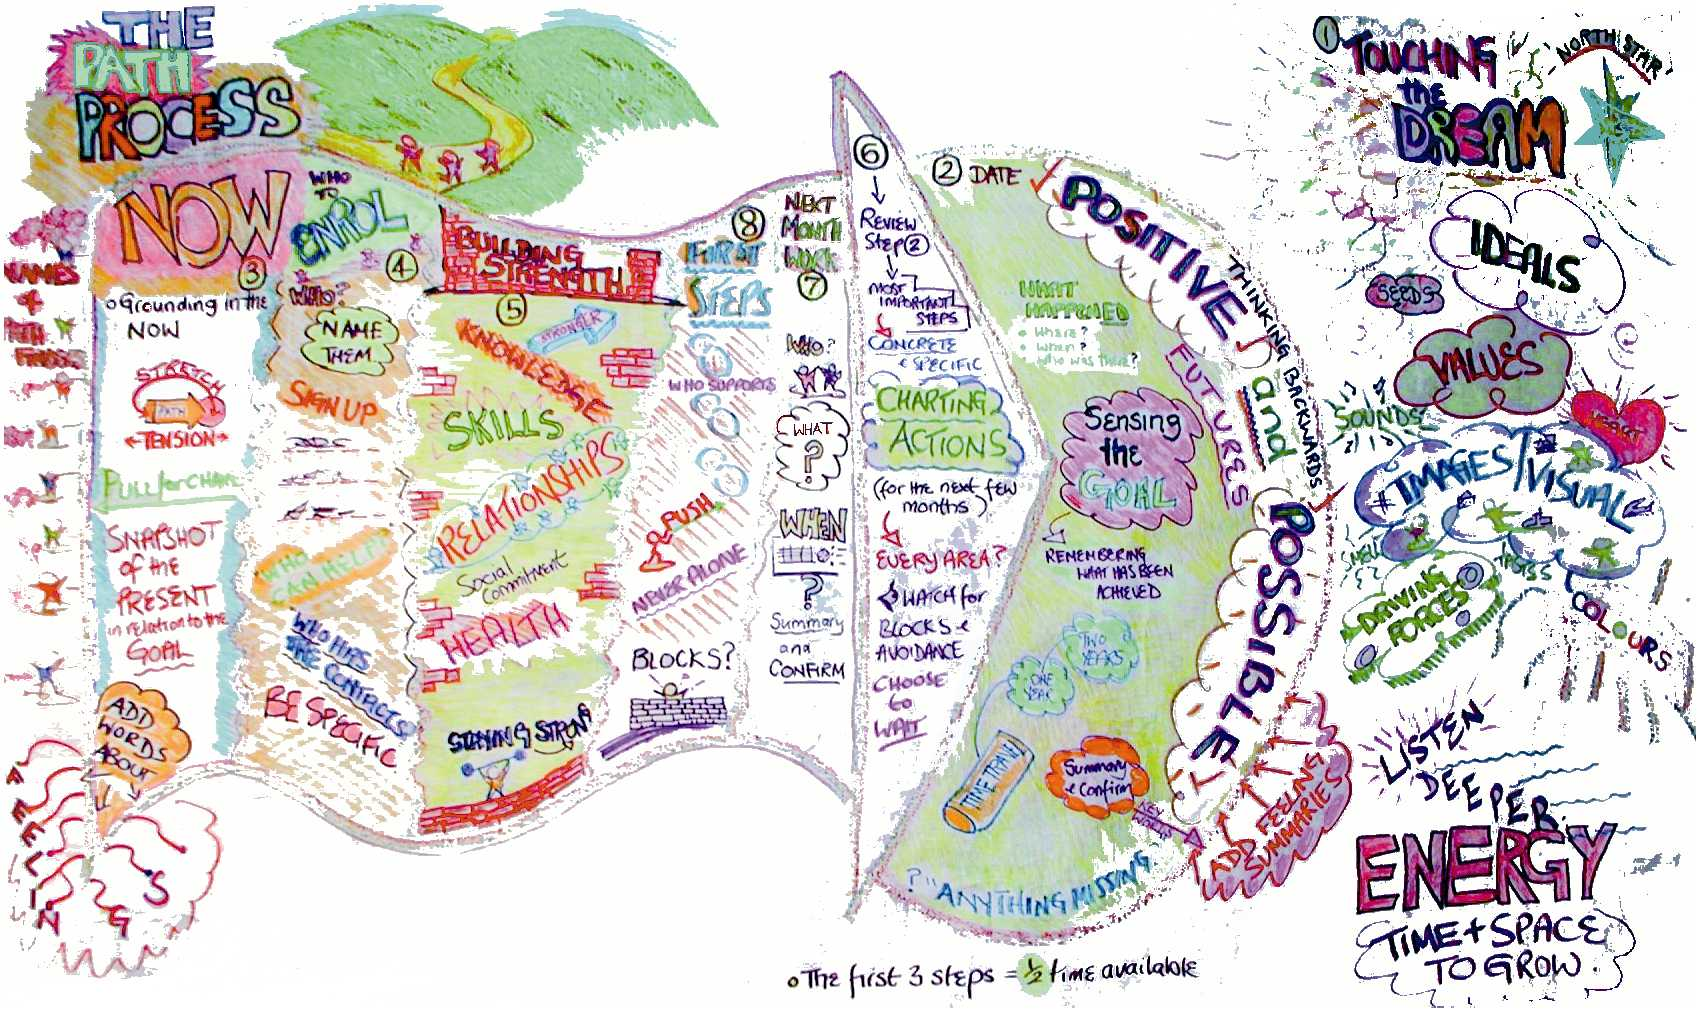 THE
PATH
PROCESS
NOW
3
o Grounding in the
NOW
STRETCH
PATH
TENSION
PULL for CHANGE
SNAPSHOT
of the
PRESENT
in relation to the
GOAL
ADD
WORDS
ABOUT
FEELINGS
NAMES
+
WHO
TO
ENROL
4
WHO?
NAME
THEM
SIGN UP
WHO
CAN HELP?
WHO HAS
THE CONTACTS
BE SPECIFIC
BUILDING
STRENGTH
5
STRONGER
KNOWLEDGE
SKILLS
RELATIONSHIPS
Social
Commitment
HEALTH
STAYING STRONG
8
FIRST
STEPS
WHO SUPPORTS
PUSH
NEVER ALONE
BLOCKS?
NEXT
MONTH
WORK
7
WHO?
WHAT
?
WHEN
?
Summary
and
CONFIRM
6
REVIEW
STEP 2
MOST
IMPORTANT
STEPS
CONCRETE
+ SPECIFIC
CHARTING
ACTIONS
(for the next few
months)
EVERY AREA?
WATCH for
BLOCKS +
AVOIDANCE
CHOOSE
to
WAIT
2 DATE
POSITIVE
and
POSSIBLE
FUTURES
THINKING BACKWARDS
WHAT
HAPPENED
• Where?
• When?
• Who was there?
Sensing
the
GOAL
REMEMBERING
WHAT HAS BEEN
ACHIEVED
TWO
YEARS
ONE
YEAR
TIME TRAVEL
Summary
+ Confirm
KEY
WORDS
ADD FEELING
SUMMARIES
? "ANYTHING MISSING
o The first 3 steps = ½ time available
1 TOUCHING
the
DREAM
NORTH STAR
IDEALS
SEEDS
VALUES
SOUNDS
HEART
IMAGES/VISUAL
SMELL
DRIVING
FORCES
COLOURS
LISTEN
DEEPER
ENERGY
TIME + SPACE
TO GROW.